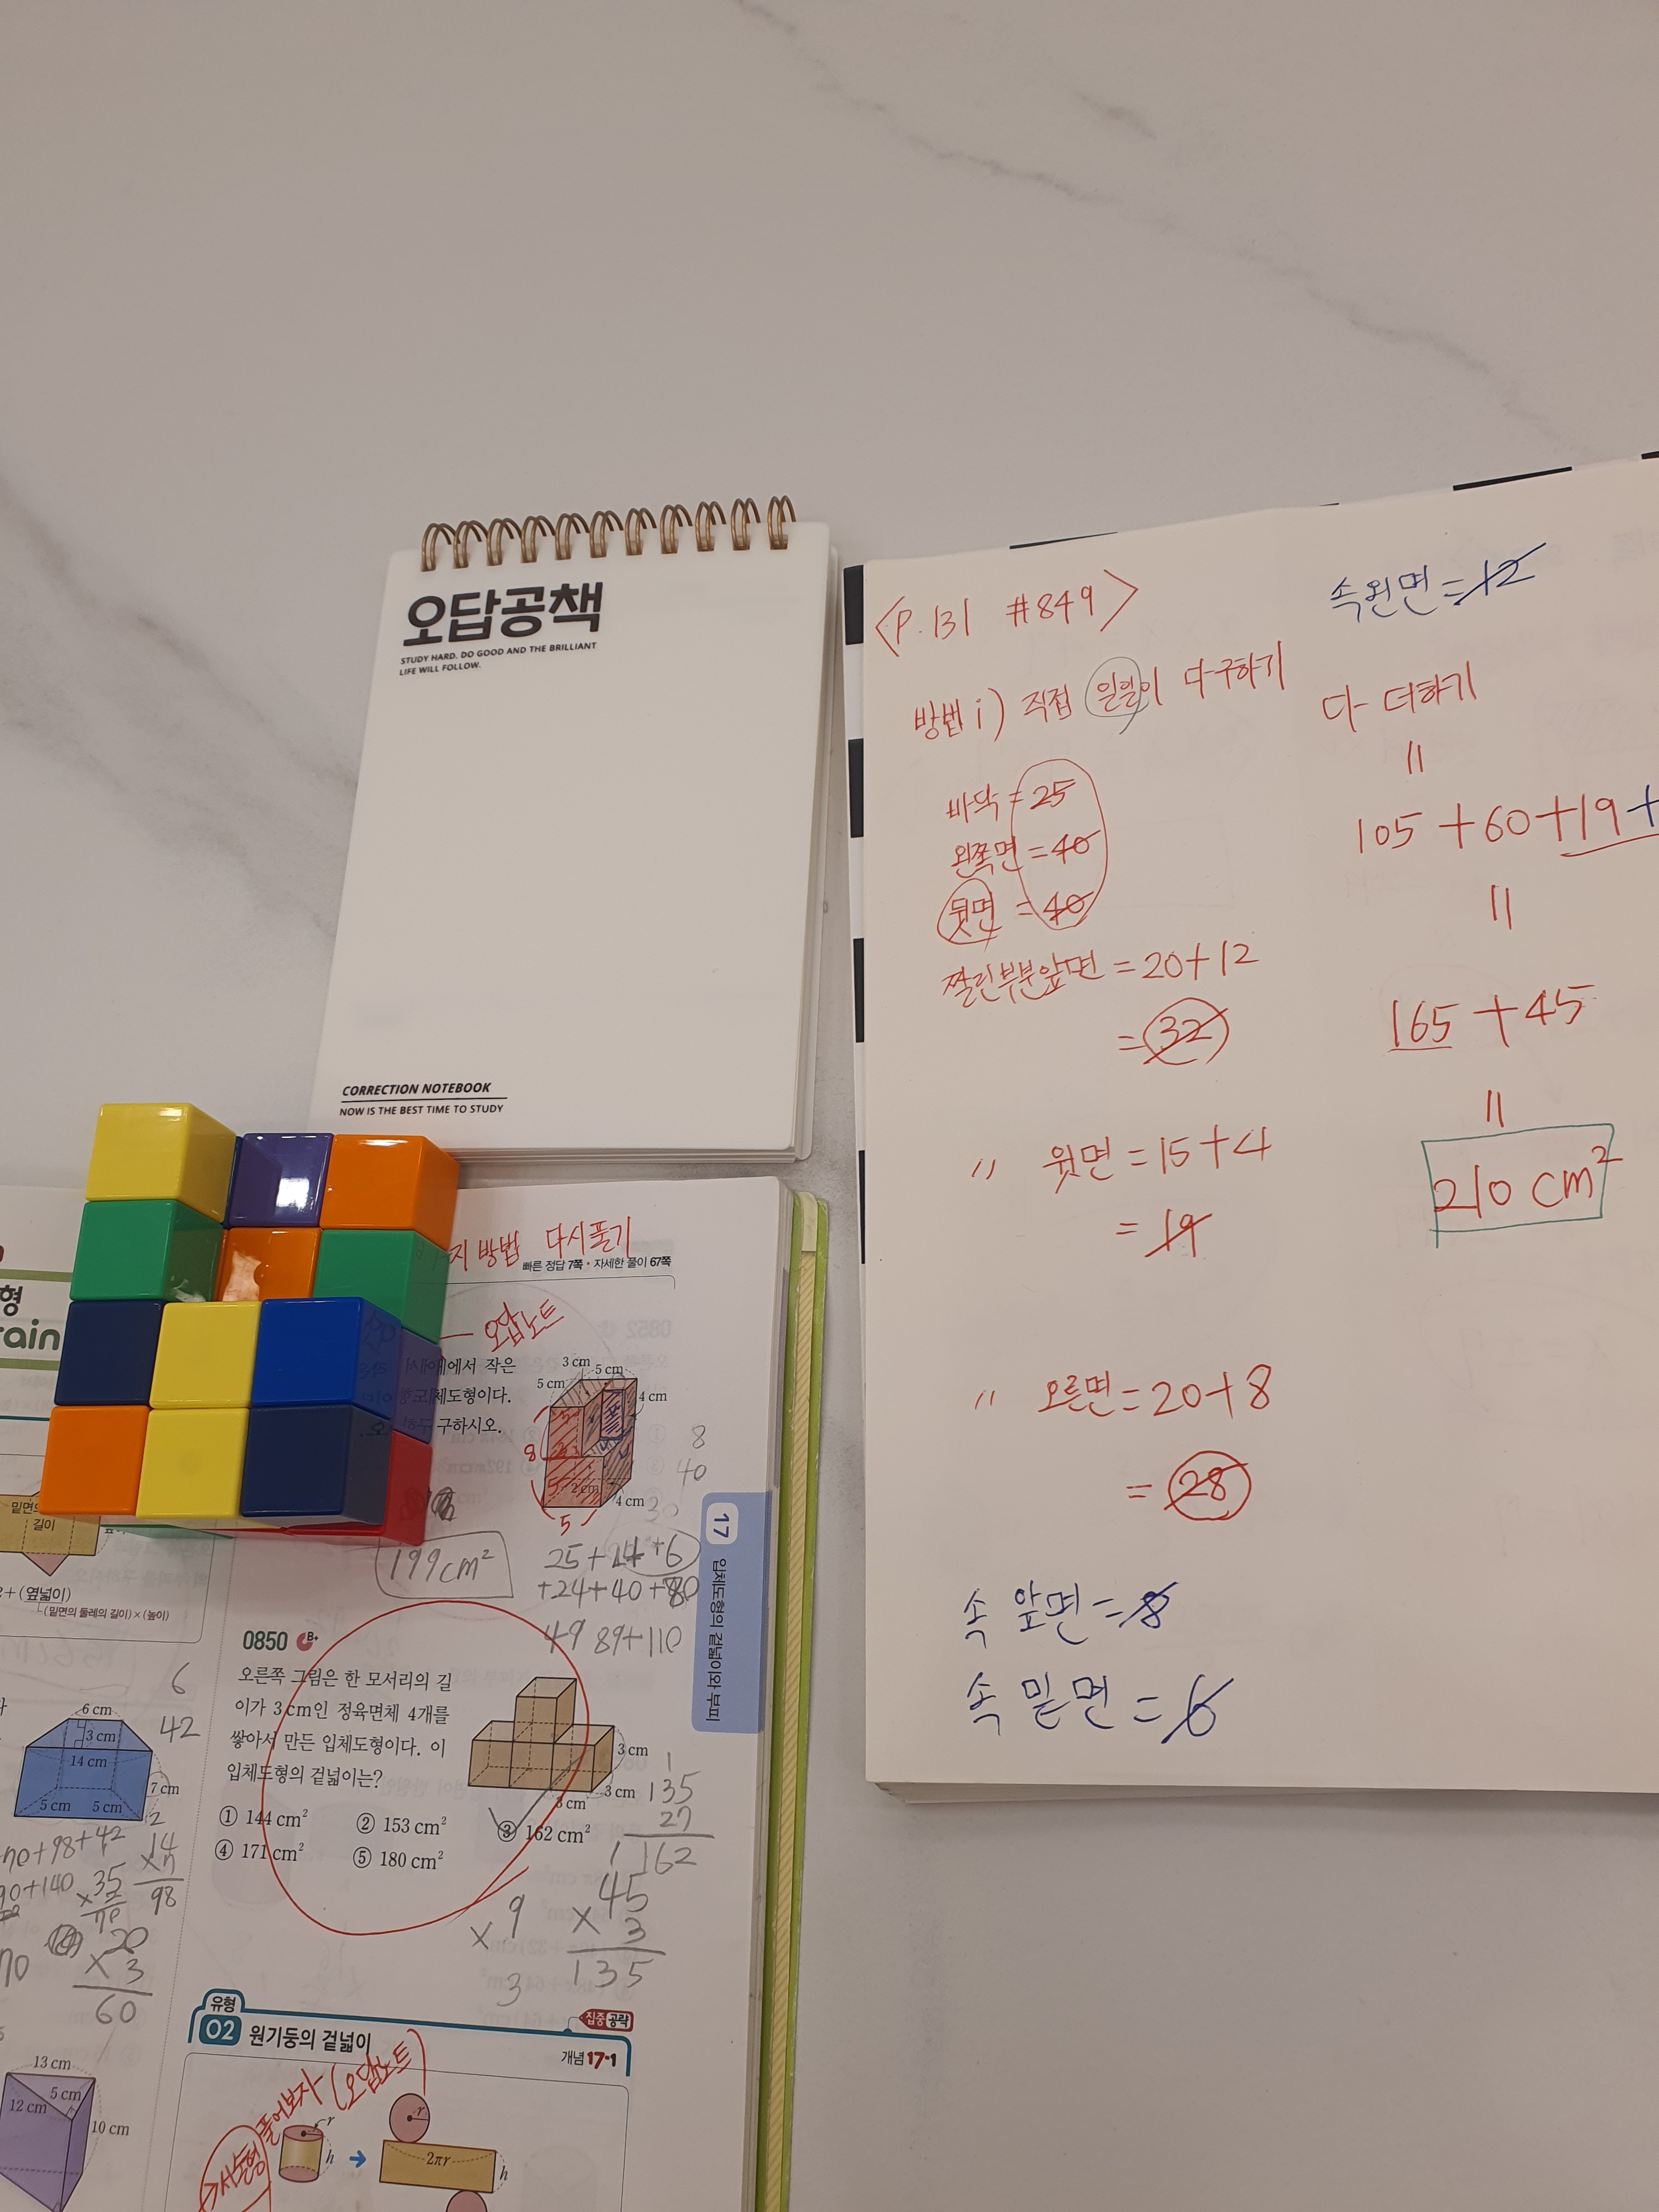 오답공책
STUDY HARD. DO GOOD AND THE BRILLIANT
LIFE WILL FOLLOW.
CORRECTION NOTEBOOK
NOW IS THE BEST TIME TO STUDY
<P.131 #849>
방법 i) 직접 일일이 다 구하기
바닥 = 25
왼쪽면 = 40
뒷면 = 40
짤린부분앞면 = 20+12
= 32
〃 윗면 = 15+4
= 19
〃 오른면 = 20+8
= 28
속 앞면 = 8
속 밑면 = 6
속왼면 = 12
다 더하기
=
105+60+19+
=
165+45
=
210 cm²
지 방법 다시풀기
빠른 정답 7쪽 • 자세한 풀이 67쪽
오답노트
에서 작은
체도형이다.
구하시오.
3 cm
5 cm
5 cm
4 cm
8
2 cm
4 cm
5
8
40
30
199cm²
25+24+6
+24+40+80
49 89+110
17
입체도형의 겉넓이와 부피
0850 B+
오른쪽 그림은 한 모서리의 길
이가 3 cm인 정육면체 4개를
쌓아서 만든 입체도형이다. 이
입체도형의 겉넓이는?
3 cm
3 cm
3 cm
① 144 cm² ② 153 cm² ③ 162 cm²
④ 171 cm² ⑤ 180 cm²
1
135
27
162
9
×
3
45
× 3
135
유형
02 원기둥의 겉넓이
집중 공략
개념 17·1
풀어보자 (오답노트)
r
h
r
2πr
h
형
rain
밑면의
길이
2+(옆넓이)
(밑면의 둘레의 길이)×(높이)
6
42
6 cm
3 cm
14 cm
7 cm
5 cm
5 cm
2
+98+42
+140
35
14
98
20
× 3
60
13 cm
5 cm
12 cm
10 cm